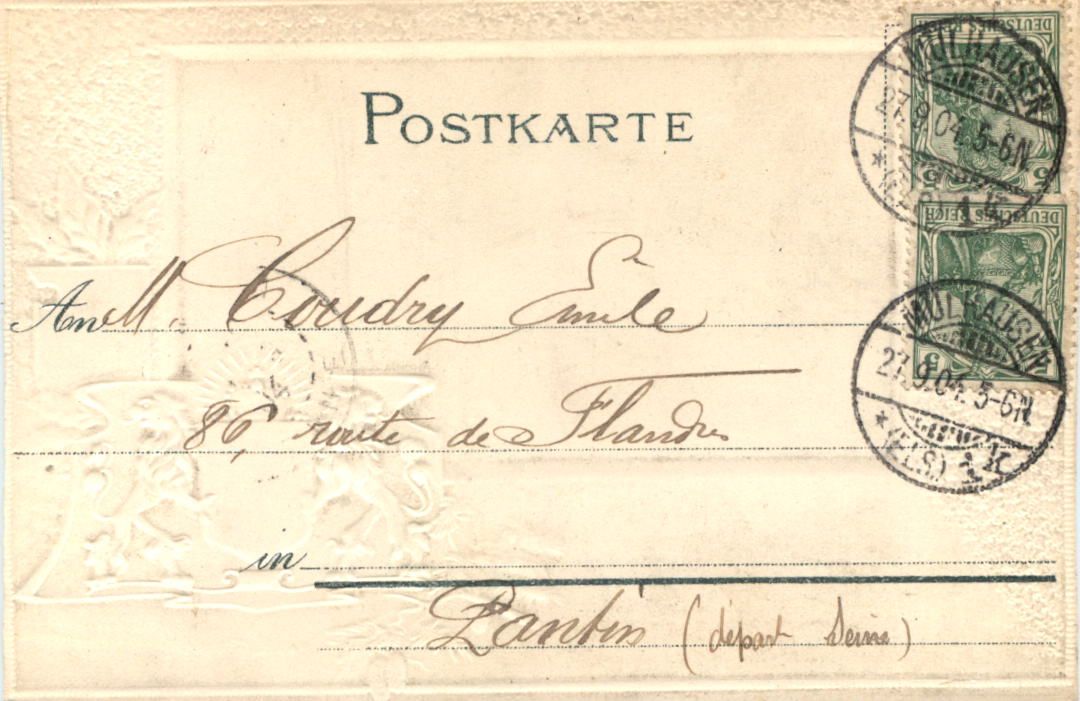 POSTKARTE
DEUTSCHES REICH
5 5
MÜLHAUSEN
27.9.04. 5-6N.
* (ELS.) 1 K
DEUTSCHES REICH
5
MÜLHAUSEN
27.9.04. 5-6N.
* (ELS.) 1 K
An M. Coudry Emile
86, route de Flandres
in
Pantin (départ Seine)